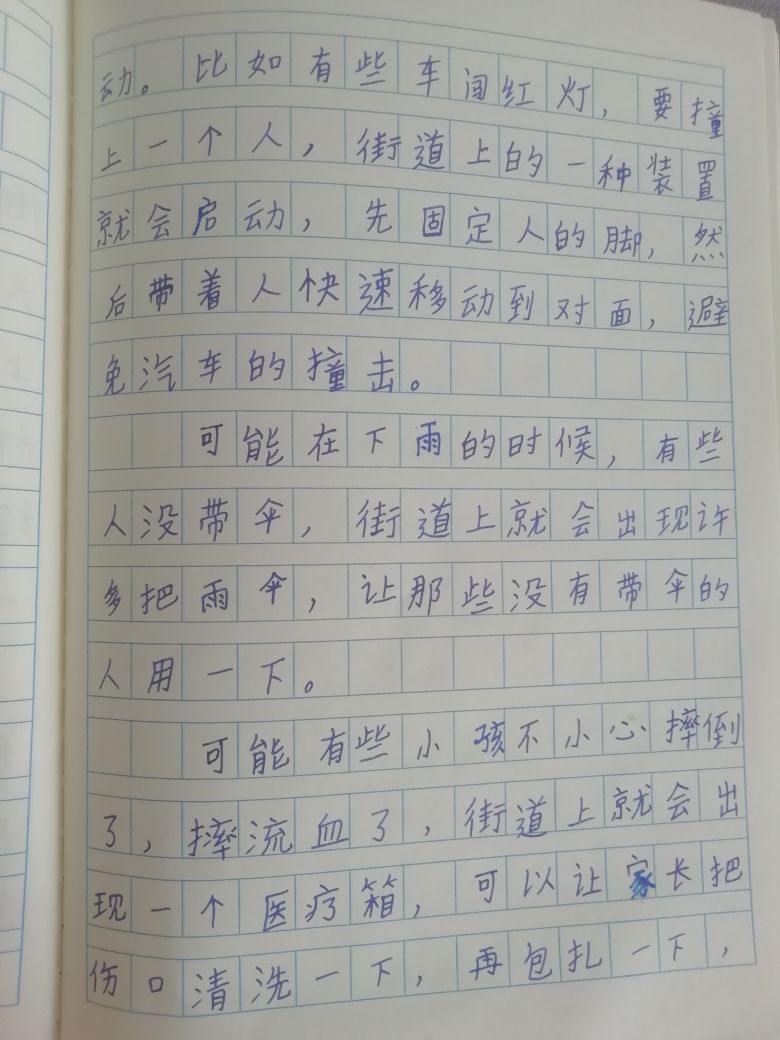 动。比如有些车闯红灯，要撞
上一个人，街道上的一种装置
就会启动，先固定人的脚，然
后带着人快速移动到对面，避
免汽车的撞击。
可能在下雨的时候，有些
人没带伞，街道上就会出现许
多把雨伞，让那些没有带伞的
人用一下。
可能有些小孩不小心摔倒
了，摔流血了，街道上就会出
现一个医疗箱，可以让家长把
伤口清洗一下，再包扎一下，